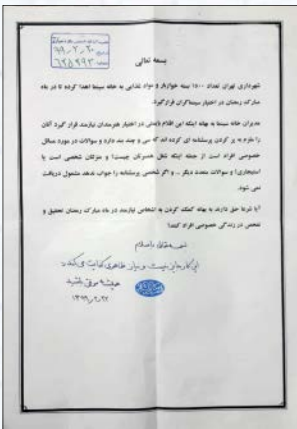 ۹۹،۲،۲۰
۶۲۵۹۹۳
بسمه تعالی
شهرداری تهران تعداد ۱۵۰۰ بسته خواربار و مواد غذایی به خانه سینما اهدا کرده تا در ماه
مبارک رمضان در اختیار سینماگران قرارگیرد.
مدیران خانه سینما به بهانه اینکه این اقلام بایستی در اختیار هنرمندان نیازمند قرار گیرد آنان
را ملزم به پر کردن پرسشنامه ای کرده اند که سی و چند بند دارد و سوالات در مورد مسائل
خصوصی افراد است از جمله اینکه شغل همسرتان چیست؟ و منزلتان شخصی است یا
استیجاری؟ و سوالات متعدد دیگر ... و اگر شخصی پرسشنامه را جواب ندهد مشمول دریافت
نمی شود.
آیا شرعا حق دارند به بهانه کمک کردن به اشخاص نیازمند در ماه مبارک رمضان تحقیق و
تفحص در زندگی خصوصی افراد کنند؟
بسمه تعالی با سلام
این کار جایز نیست و نیاز ظاهری کفایت می کند
همیشه موفق باشید
۱۳۹۹،۲،۲۲